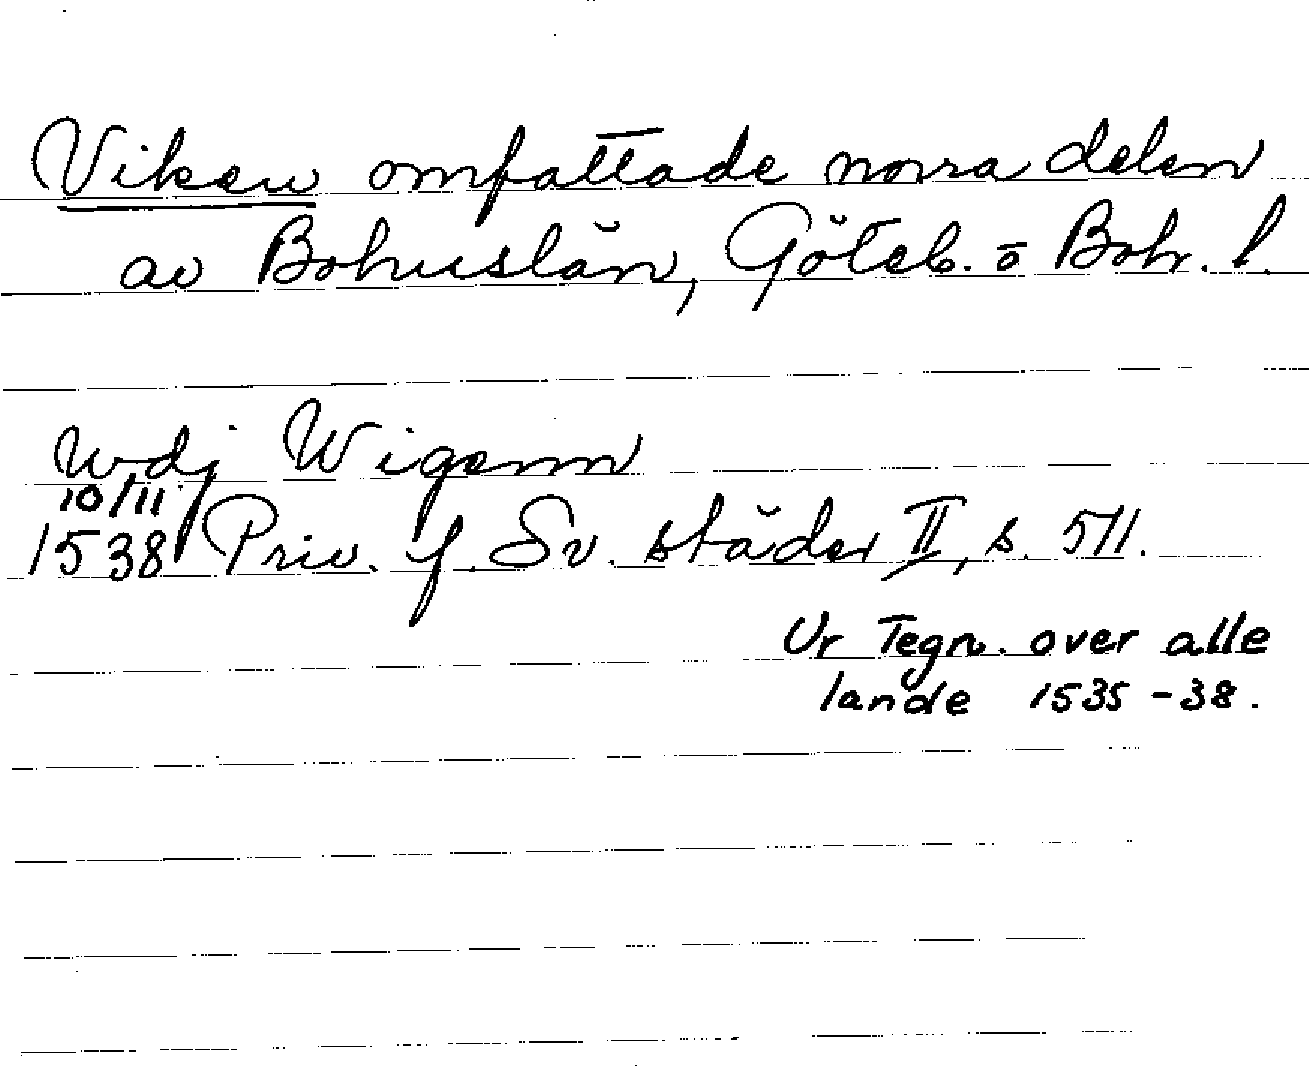 Viken omfattade norra delen
av Bohuslän, Göteb. o Boh. l.
udj Wigenn
10/11
1538 Priv. f. Sv. städer II, s. 511.
Ur Tegn. over alle
lande 1535-38.